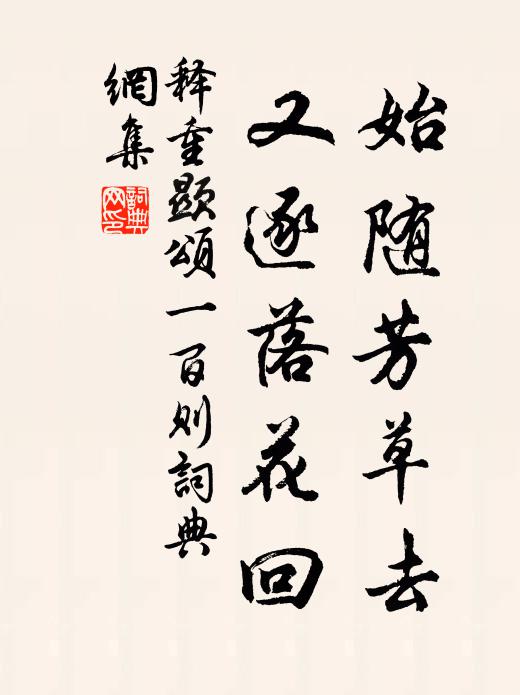 始随芳草去
又逐落花回
释重顯頌一百则詞典
網集
詞典
网印